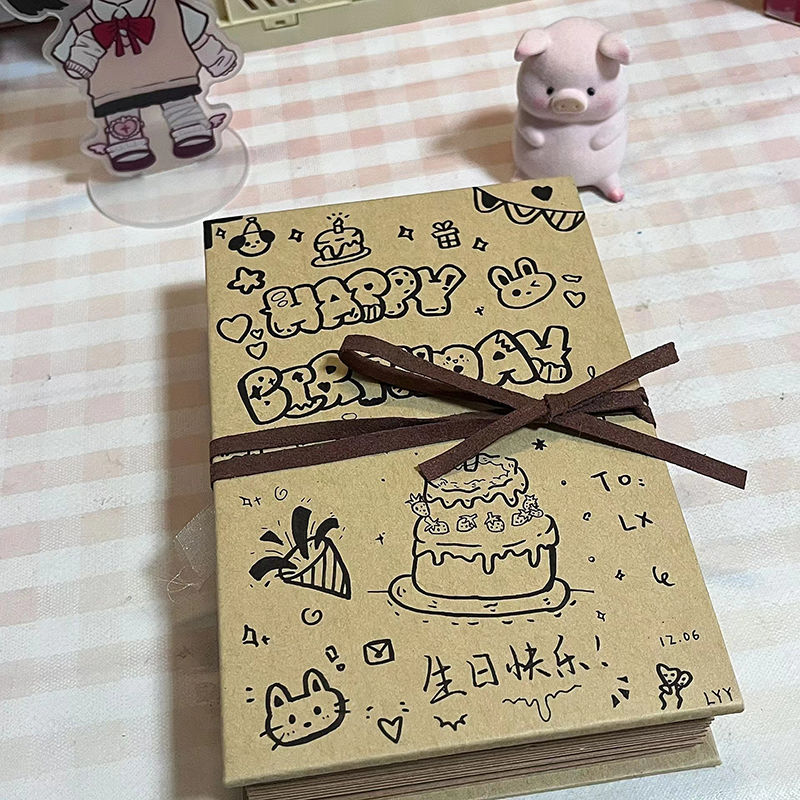 HAPPY
BIRTHDAY
TO:
LX
12.06
生日快乐!
LYY